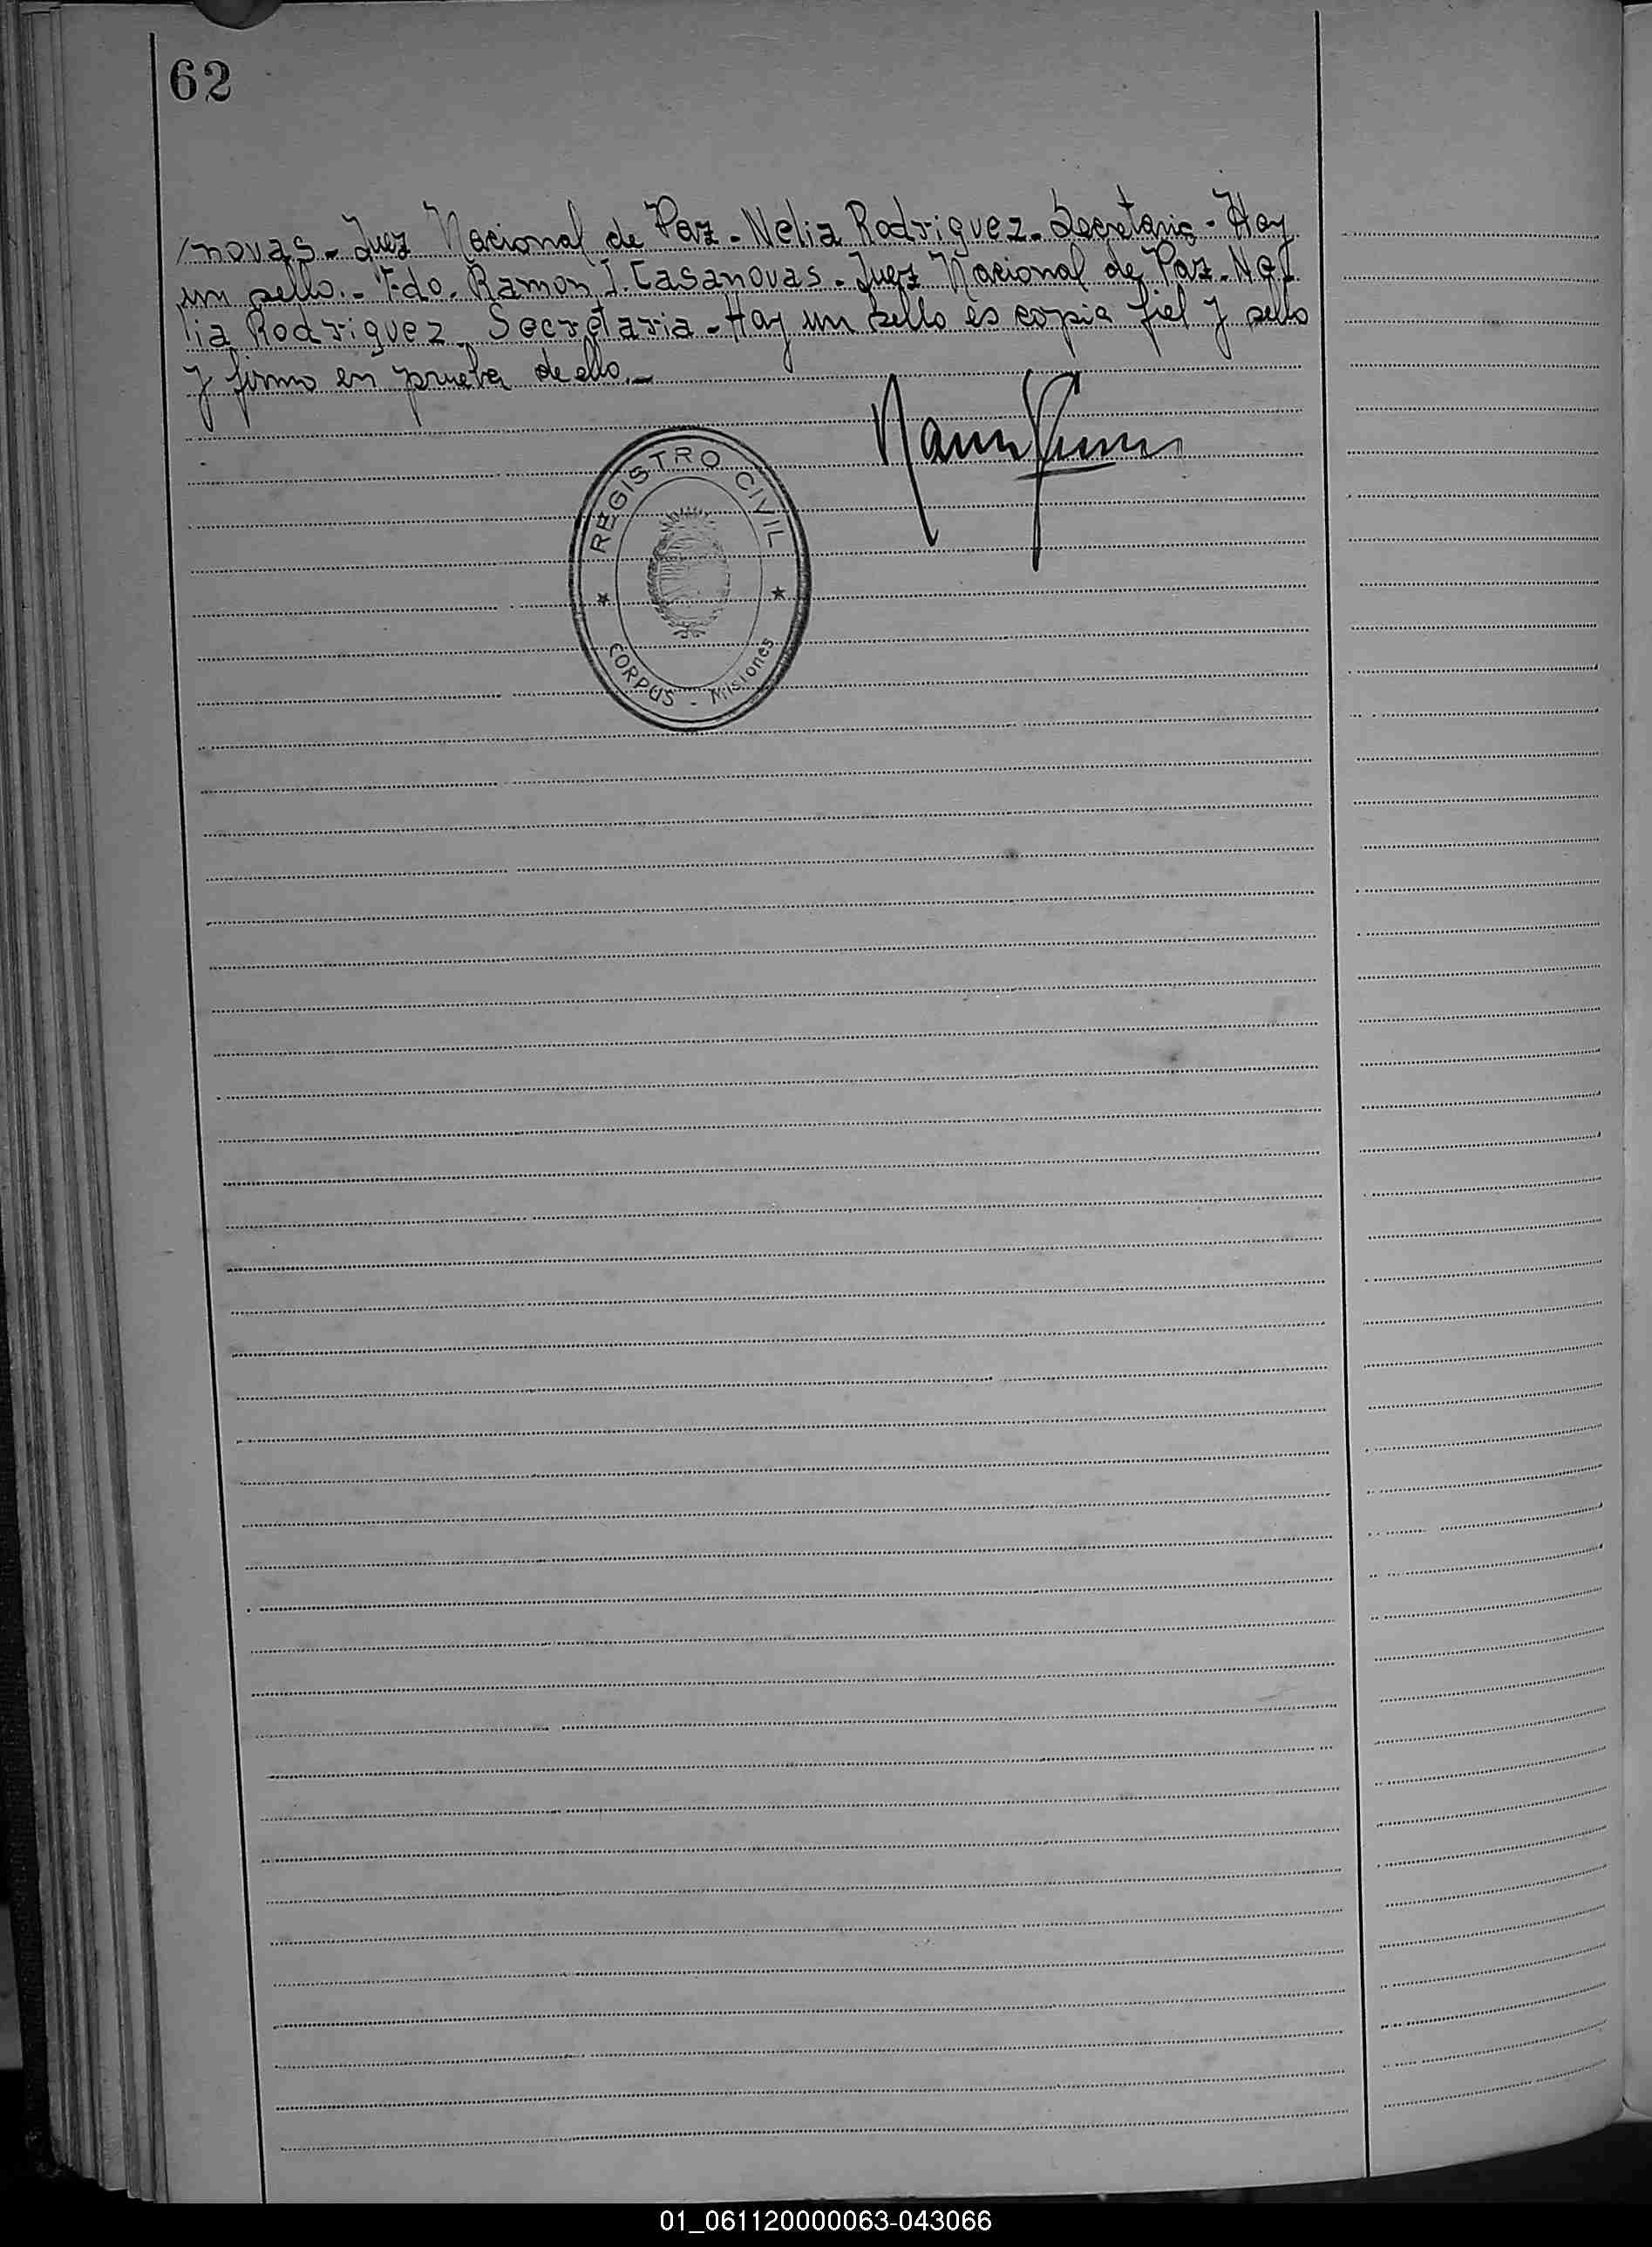 62
/novas - Juez Nacional de Paz - Nelia Rodriguez - Secretaria - Hay
un sello. - Fdo. Ramon I. Casanovas - Juez Nacional de Paz - Ne/
lia Rodriguez - Secretaria - Hay un sello es copia fiel y sello
y firmo en prueba de ello. -
REGISTRO CIVIL
CORPUS - Misiones
01_061120000063-043066